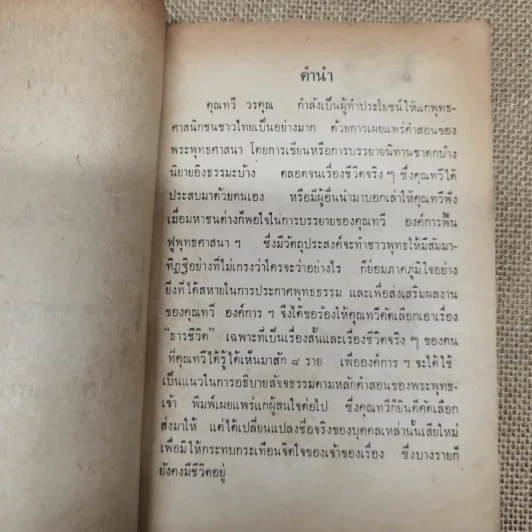 คำนำ
คุณทวี วรคุณ กำลังเป็นผู้ทำประโยชน์ให้แก่พุทธ-
ศาสนิกชนชาวไทยเป็นอย่างมาก ด้วยการเผยแพร่คำสอนของ
พระพุทธศาสนา โดยการเขียนหรือการบรรยายนิทานชาดกบ้าง
นิยายอิงธรรมะบ้าง ตลอดจนเรื่องชีวิตจริง ๆ ซึ่งคุณทวีได้
ประสบมาด้วยตนเอง หรือมีผู้อื่นนำมาบอกเล่าให้คุณทวีฟัง
เมื่อมหาชนต่างก็พอใจในการบรรยายของคุณทวี องค์การฟื้น
ฟูพุทธศาสนา ฯ ซึ่งมีวัตถุประสงค์จะทำชาวพุทธให้มีสัมมา-
ทิฏฐิอย่างที่ไม่เกรงว่าใครจะว่าอย่างไร ก็ย่อมภาคภูมิใจอย่าง
ยิ่งที่ได้สหายในการประกาศพุทธธรรม และเพื่อส่งเสริมผลงาน
ของคุณทวี องค์การ ฯ จึงได้ขอร้องให้คุณทวีคัดเลือกเอาเรื่อง
"ธารชีวิต" เฉพาะที่เป็นเรื่องสั้นและเรื่องชีวิตจริง ๆ ของคน
ที่คุณทวีได้รู้ได้เห็นมาสัก ๘ ราย เพื่อองค์การ ฯ จะได้ใช้
เป็นแนวในการอธิบายสัจจธรรมตามหลักคำสอนของพระพุทธ-
เจ้า พิมพ์เผยแพร่แก่ผู้สนใจต่อไป ซึ่งคุณทวีก็ยินดีคัดเลือก
ส่งมาให้ แต่ได้เปลี่ยนแปลงชื่อจริงของบุคคลเหล่านั้นเสียใหม่
เพื่อมิให้กระทบกระเทือนจิตใจของเจ้าของเรื่อง ซึ่งบางรายก็
ยังคงมีชีวิตอยู่